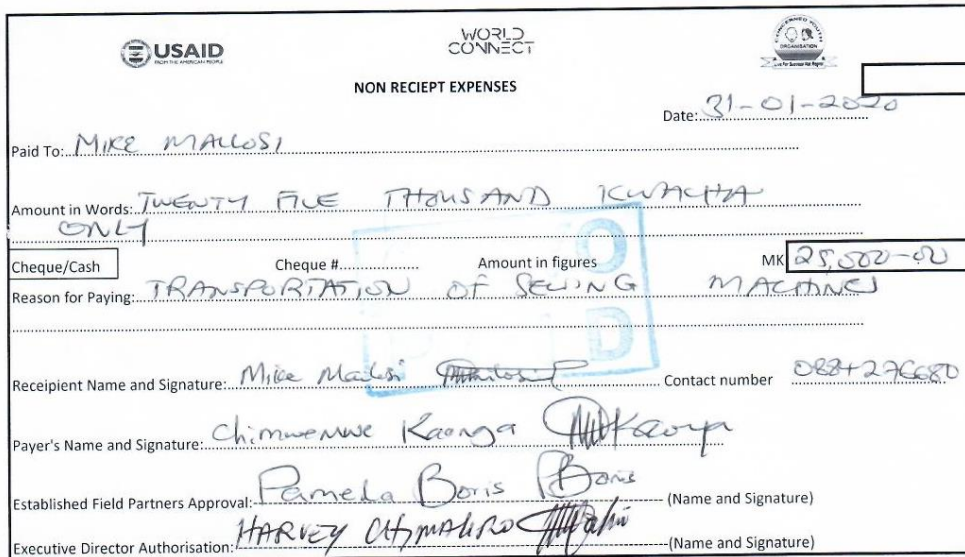 USAID
FROM THE AMERICAN PEOPLE
WORLD
CONNECT
CONCERNED YOUTH
ORGANISATION
NON RECIEPT EXPENSES
Date: 31-01-2020
Paid To: MIKE MALLOSI
Amount in Words: TWENTY FIVE THOUSAND KWACHA
ONLY
Cheque/Cash Cheque #. Amount in figures MK 25,000-00
Reason for Paying: TRANSPORTATION OF SEWING MACHINES
Receipient Name and Signature: Mike Mallosi Contact number
Payer's Name and Signature: Chimwemwe Kaonga
Established Field Partners Approval: Pamela Boris Boris (Name and Signature)
Executive Director Authorisation: HARVEY (Name and Signature)